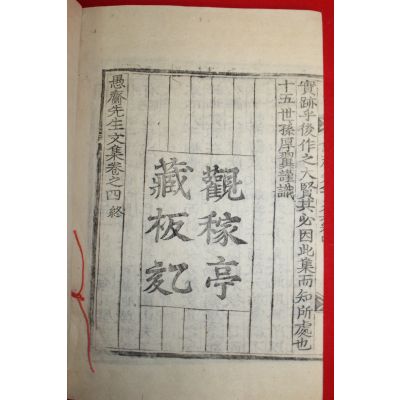 實跡乎後作之大賢其必因此集而知所處也
十五世孫厚翼謹識
觀稼亭
藏板刻
愚齋先生文集卷之四 終